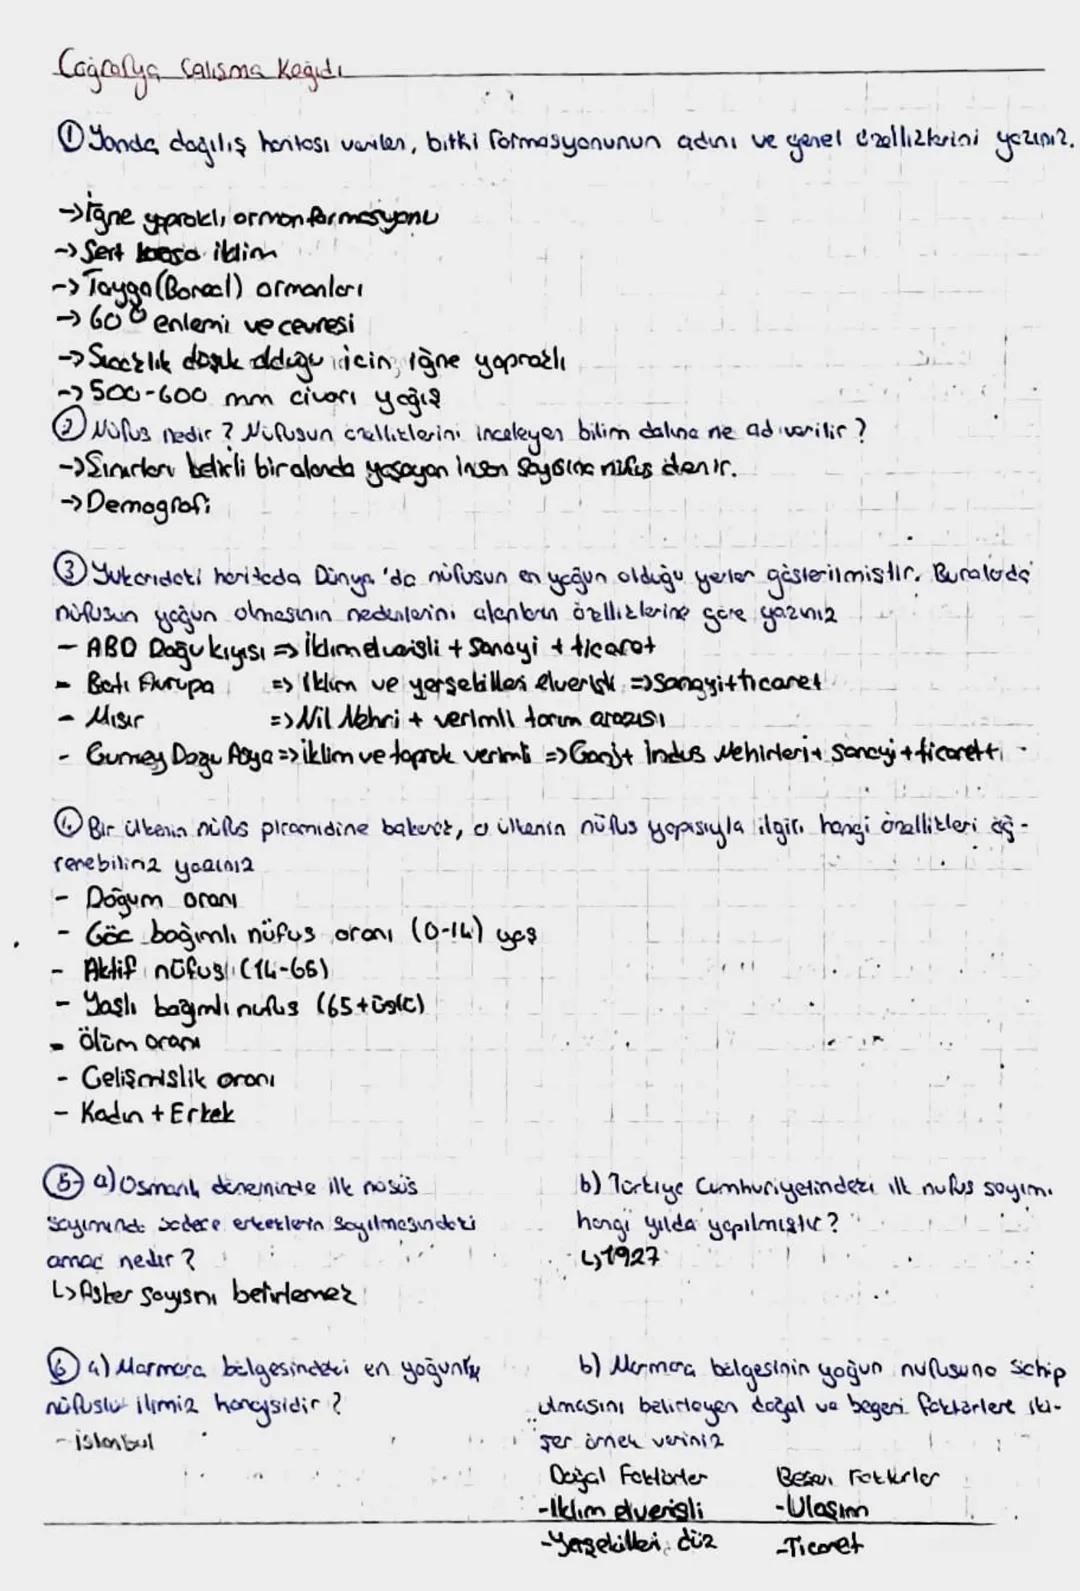 Coğrafya Çalışma Kağıdı
① Yanda dağılış haritası verilen, bitki formasyonunun adını ve genel özelliklerini yazınız.
→ İğne yapraklı orman formasyonu
→ Sert karasal iklim
→ Tayga (Boreal) ormanları
→ 60° enlemi ve çevresi
→ Sıcaklık düşük olduğu için iğne yapraklı
→ 500-600 mm civarı yağış
② Nüfus nedir? Nüfusun özelliklerini inceleyen bilim dalına ne ad verilir?
→ Sınırları belirli bir alanda yaşayan insan sayısına nüfus denir.
→ Demografi
③ Yukarıdaki haritada Dünya'da nüfusun en yoğun olduğu yerler gösterilmiştir. Buralarda
nüfusun yoğun olmasının nedenlerini alanların özelliklerine göre yazınız
- ABD Doğu kıyısı => İklim elverişli + Sanayi + ticaret
- Batı Avrupa => İklim ve yerşekilleri elverişli => Sanayi + ticaret
- Mısır => Nil Nehri + verimli tarım arazisi
- Güney Doğu Asya => İklim ve toprak verimli => Ganj + İndus Nehirleri + sanayi + ticaret
④ Bir ülkenin nüfus piramidine bakarak, o ülkenin nüfus yapısıyla ilgili hangi özellikleri öğ-
renebiliriz yazınız
- Doğum oranı
- Göç bağımlı nüfus oranı (0-14) yaş
- Aktif nüfus (14-65)
- Yaşlı bağımlı nüfus (65+üstü)
- Ölüm oranı
- Gelişmişlik oranı
- Kadın + Erkek
⑤ a) Osmanlı döneminde ilk nüfus
sayımında sadece erkeklerin sayılmasındaki
amaç nedir?
↳ Asker sayısını belirlemek
b) Türkiye Cumhuriyetindeki ilk nufus sayımı
hangi yılda yapılmıştır?
↳ 1927
⑥ a) Marmara bölgesindeki en yoğun
nüfuslu ilimiz hangisidir?
- İstanbul
b) Marmara bölgesinin yoğun nufusuna sahip
olmasını belirleyen doğal ve beşeri faktörlere iki-
şer örnek veriniz
Doğal Faktörler Beşeri Faktörler
- İklim elverişli - Ulaşım
- Yerşekilleri düz - Ticaret